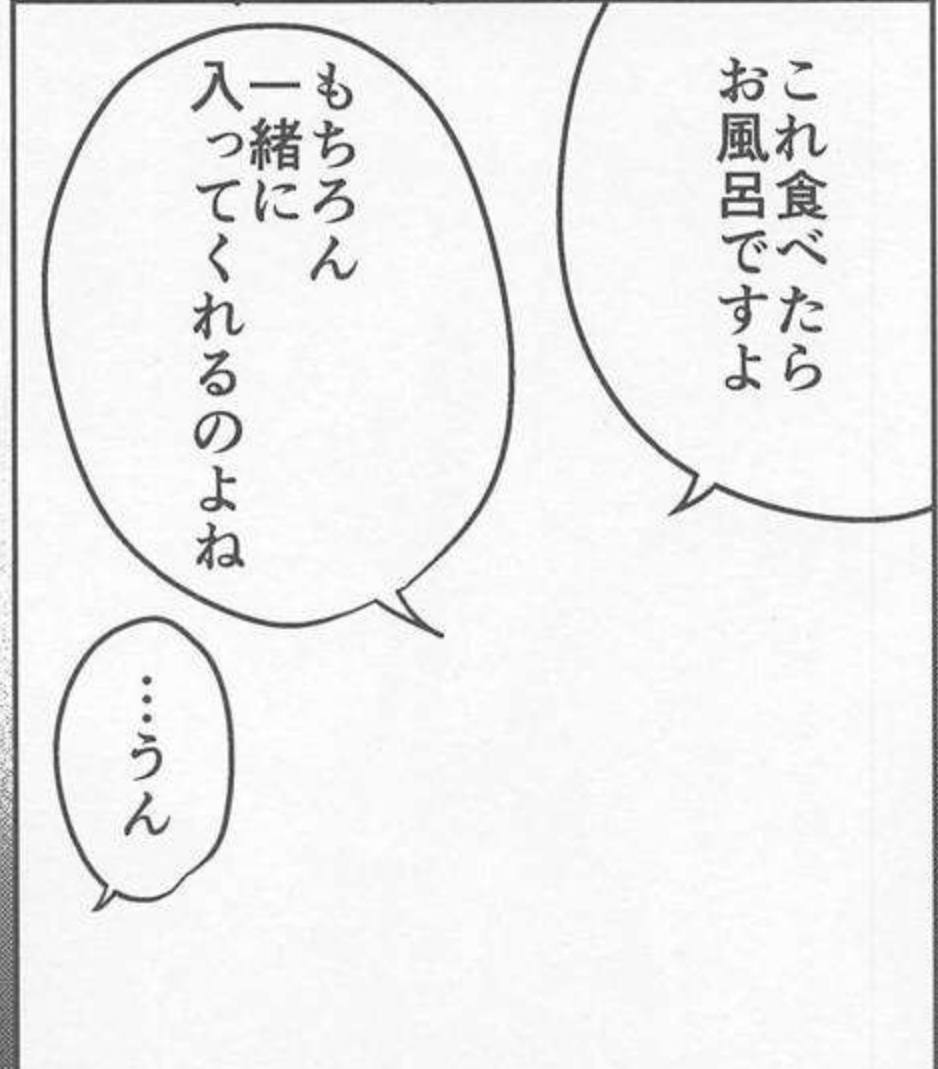 これ食べたら
お風呂ですよ
もちろん
一緒に
入ってくれるのよね
…うん